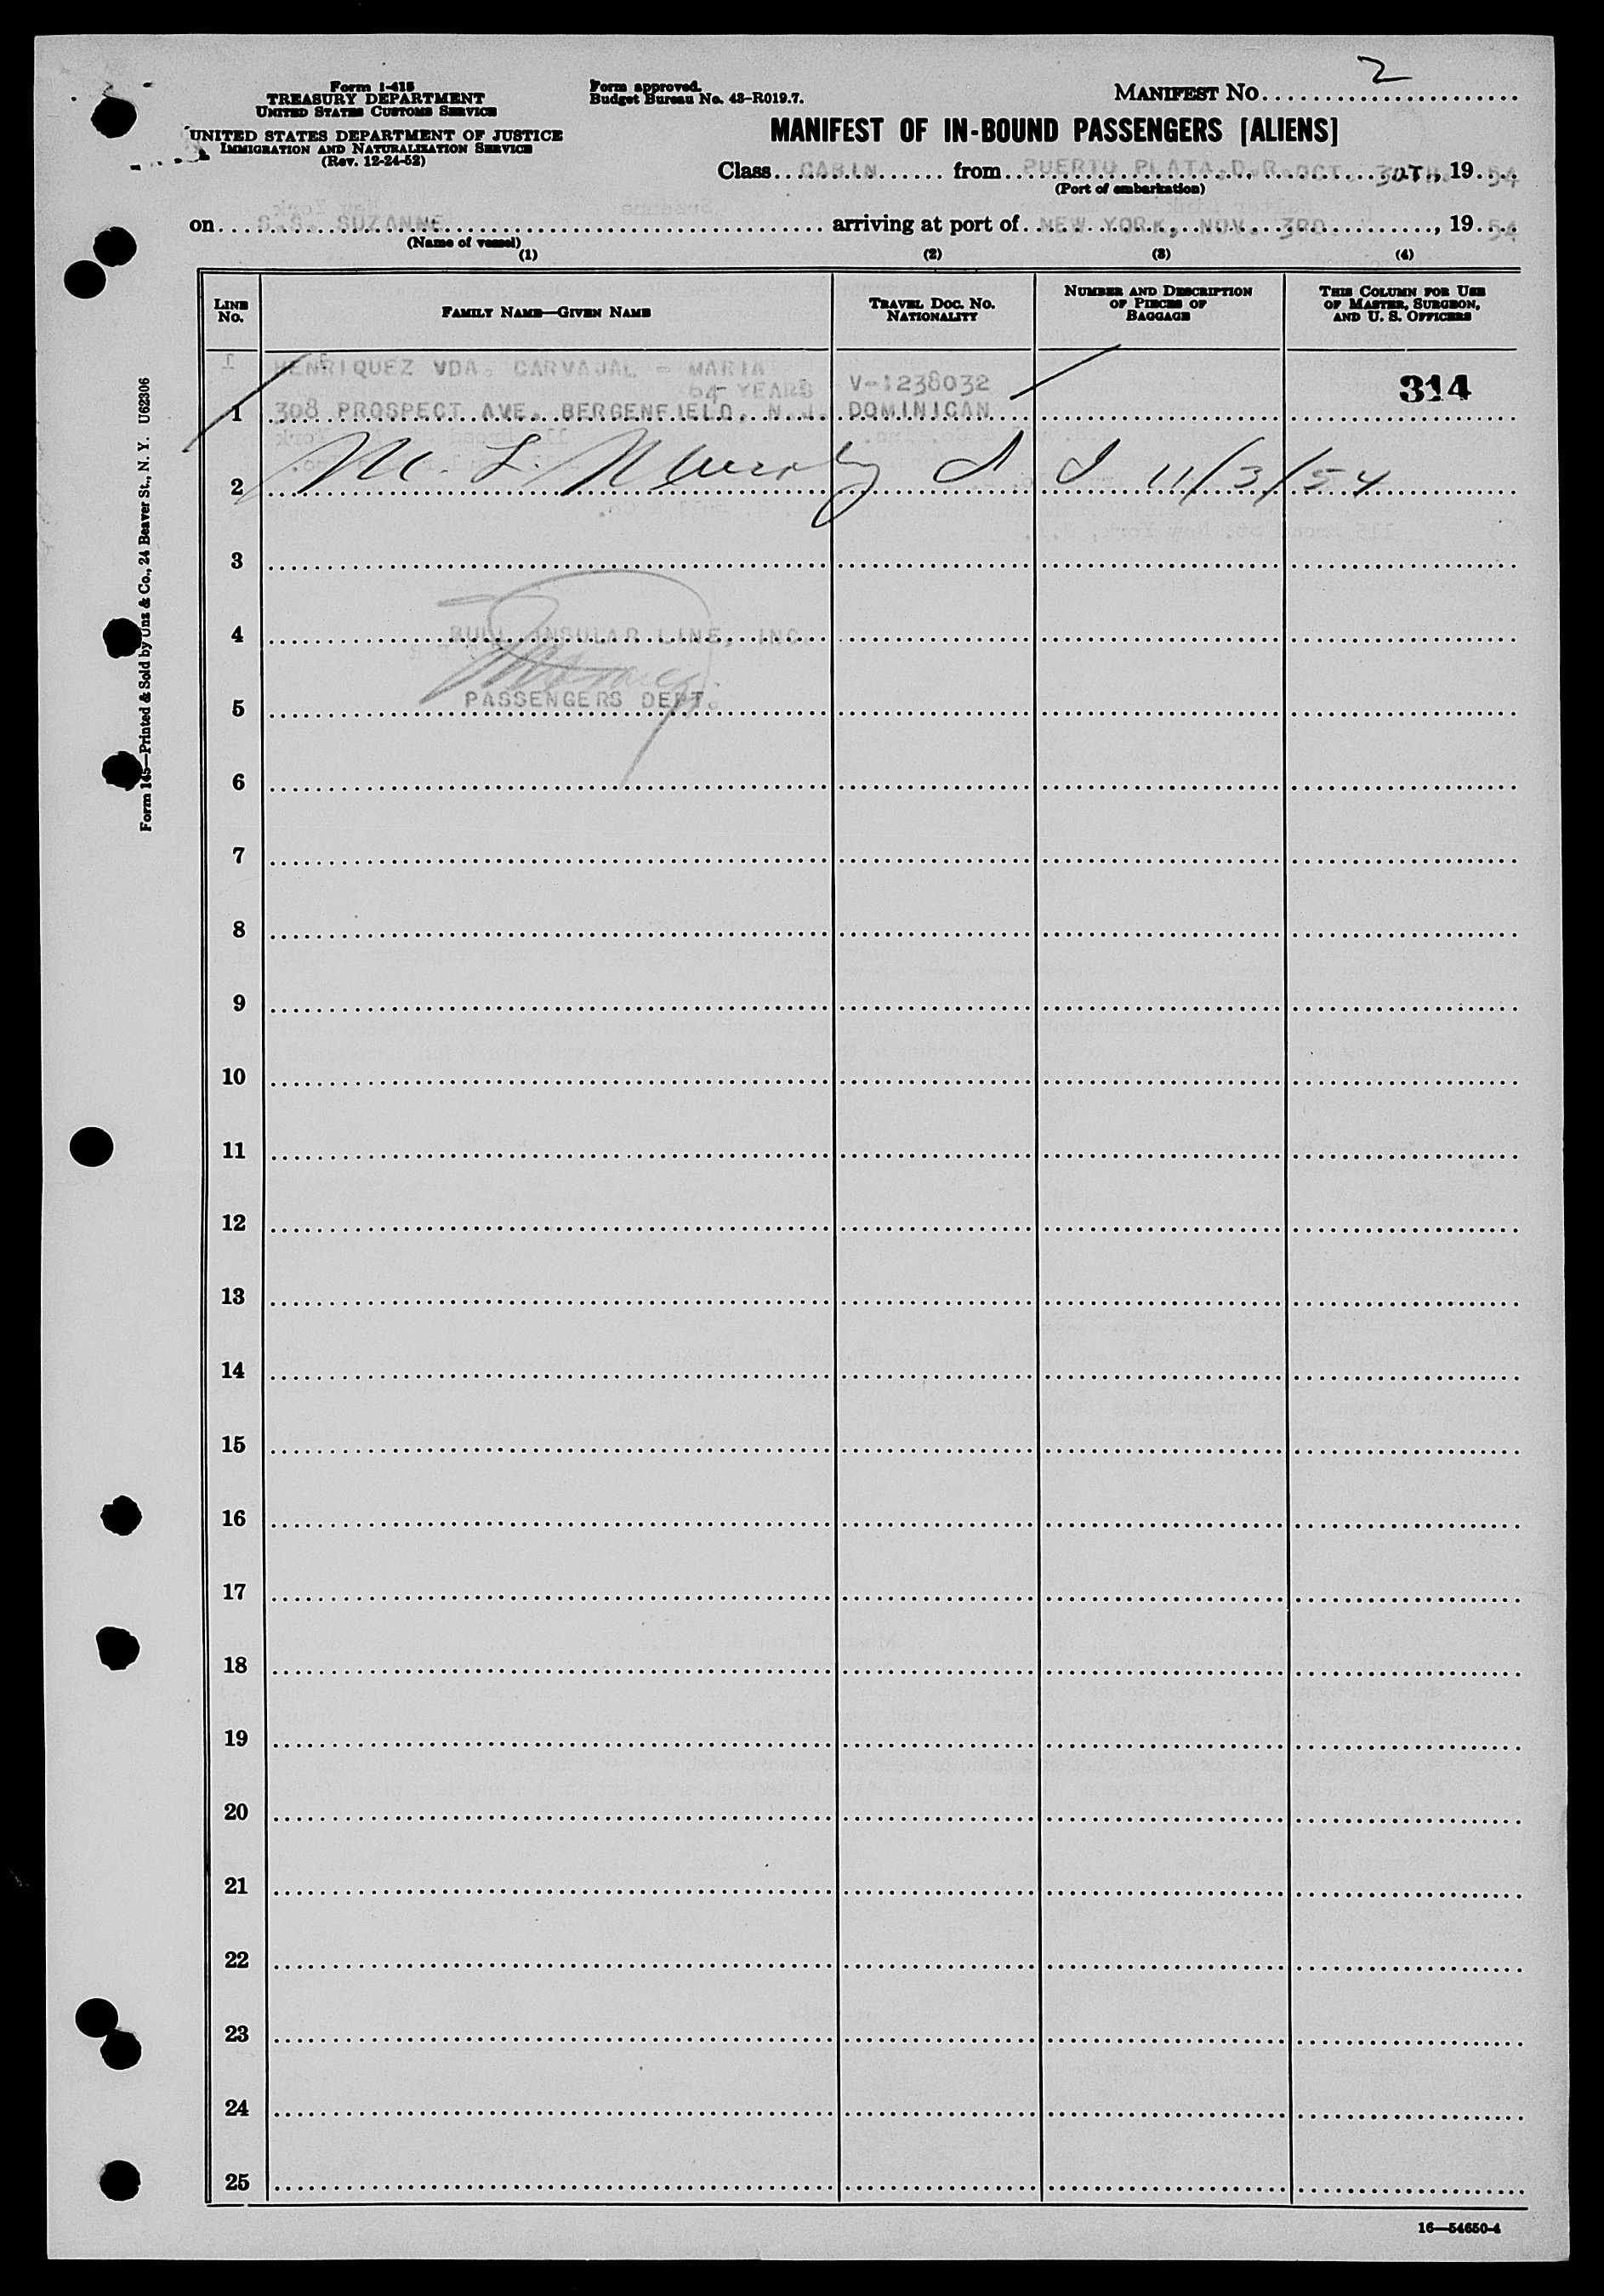 Form I-415
TREASURY DEPARTMENT
UNITED STATES CUSTOMS SERVICE
UNITED STATES DEPARTMENT OF JUSTICE
IMMIGRATION AND NATURALIZATION SERVICE
(Rev. 12-24-52)
Form approved.
Budget Bureau No. 43-R019.7.
MANIFEST No. 2
MANIFEST OF IN-BOUND PASSENGERS [ALIENS]
Class CABIN from PUERTO PLATA, D.R. OCT. 30TH, 19 54
(Port of embarkation)
on S.S. SUZANNE arriving at port of NEW YORK, NOV. 3RD, 19 54
(Name of vessel)
(1) (2) (3) (4)
LINE No.
FAMILY NAME—GIVEN NAME
TRAVEL DOC. NO. NATIONALITY
NUMBER AND DESCRIPTION OF PIECES OF BAGGAGE
THIS COLUMN FOR USE OF MASTER, SURGEON, AND U. S. OFFICERS
HENRIQUEZ VDA. CARVAJAL - MARIA
64 YEARS V-1238032 314
1 308 PROSPECT AVE. BERGENFIELD, N.J. DOMINICAN
2 M. L. Murphy 11/3/54
3
4 BULL INSULAR LINE, INC.
5 PASSENGERS DEPT.
6
7
8
9
10
11
12
13
14
15
16
17
18
19
20
21
22
23
24
25
Form 145—Printed & Sold by Unz & Co., 24 Beaver St., N. Y. U62306
16—54650-4